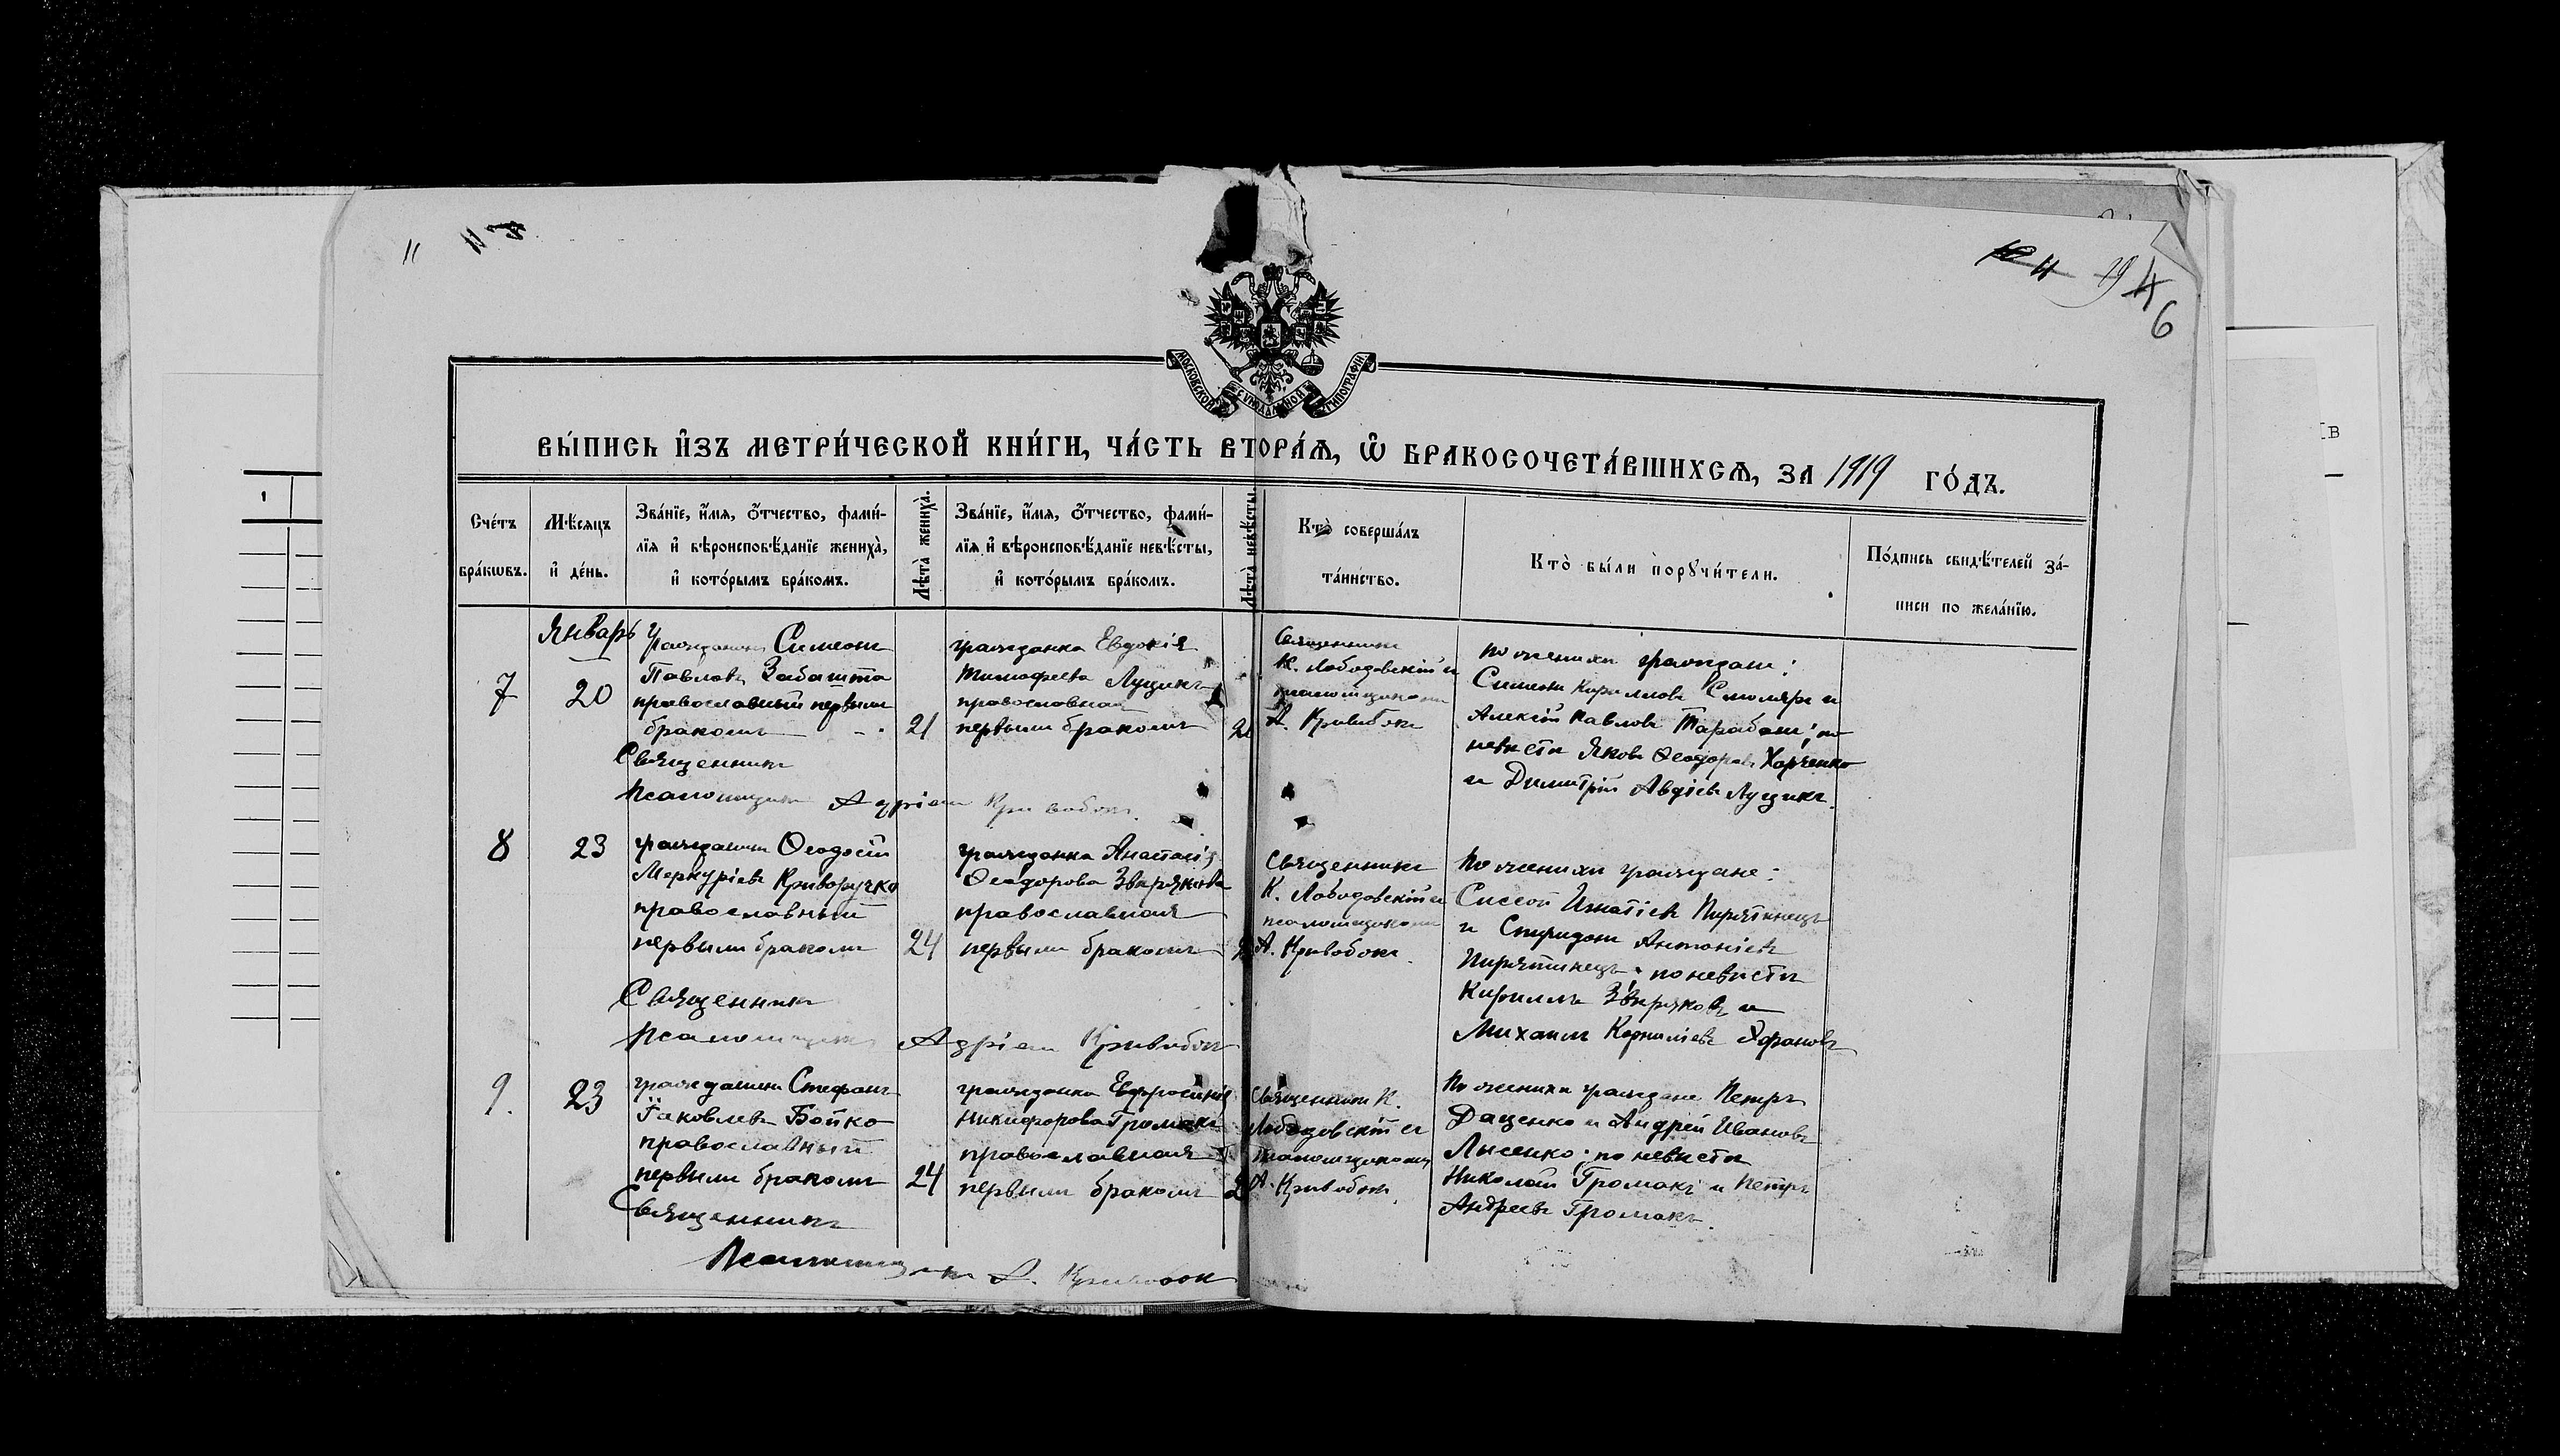 11
19 4
6
МОСКОВСКОЙ СѴНОДАЛЬНОЙ ТИПОГРАФІИ
ВЫ́ПИСЬ И҆ЗЪ МЕТРИ́ЧЕСКОЙ КНИ́ГИ, ЧА́СТЬ ВТОРА́Ѧ, Ѽ БРАКОСОЧЕТА́ВШИХСѦ, ЗА 1919 ГО́ДЪ.
Сче́тъ бра́кѡвъ.
Мѣ́сяцъ и҆ де́нь.
Зва́нїе, и҆́мя, о҆́тчество, фами́-
лїя и҆ вѣроисповѣ́данїе жениха̀,
и҆ кото́рымъ бра́комъ.
Лѣта̀ жениха̀.
Зва́нїе, и҆́мя, о҆́тчество, фами́-
лїя и҆ вѣроисповѣ́данїе невѣ́сты,
и҆ кото́рымъ бра́комъ.
Лѣта̀ невѣ́сты.
Кто̀ соверша́лъ
та́инство.
Кто̀ бы́ли порꙋчи́тели.
По́дпись свидѣ́телей за́-
писи по жела́нїю.
Январь
7
20
гражданинъ Симеонъ
Павловъ Забашта
православный первымъ
бракомъ
21
гражданка Евдокія
Тимофеева Луцикъ
православная
первымъ бракомъ
Священникъ
К. Лободовскій и
псаломщикомъ
А. Кривобокъ
По женихи граждане:
Симеонъ Кирилловъ Смоляръ и
Алексій Павловъ Тарабанъ; по
невести Яковъ Ѳеодоровъ Харченко
и Димитрій Авдіевъ Луцикъ.
Священникъ
Псаломщикъ Адріанъ Кривобокъ.
8
23
гражданинъ Ѳеодосій
Меркуріевъ Криворучко
православный
первымъ бракомъ
24
гражданка Анастасія
Ѳеодорова Звѣрякова
православная
первымъ бракомъ
Священникъ
К. Лободовскій и
псаломщикомъ
А. Кривобокъ.
По женихи граждане:
Сисой Игнатіевъ Пирятинецъ
и Спиридонъ Антоніевъ
Пирятинецъ; по невести
Кириллъ Звѣряковъ и
Михаилъ Корниліевъ
Священникъ
Псаломщикъ Адріанъ Кривобокъ
9.
23
гражданинъ Стефанъ
Іаковлевъ Бойко
православный
первымъ бракомъ
24
гражданка Евфросинія
Никифорова Громакъ
православная
первымъ бракомъ
Священникъ К.
Лободовскій и
псаломщикомъ
А. Кривобокъ.
По женихи граждане Петръ
Даценко и Андрей Ивановъ
Лысенко; по невести
Николай Громакъ и Петръ
Андреевъ Громакъ.
Священникъ
Псаломщикъ А. Кривобокъ